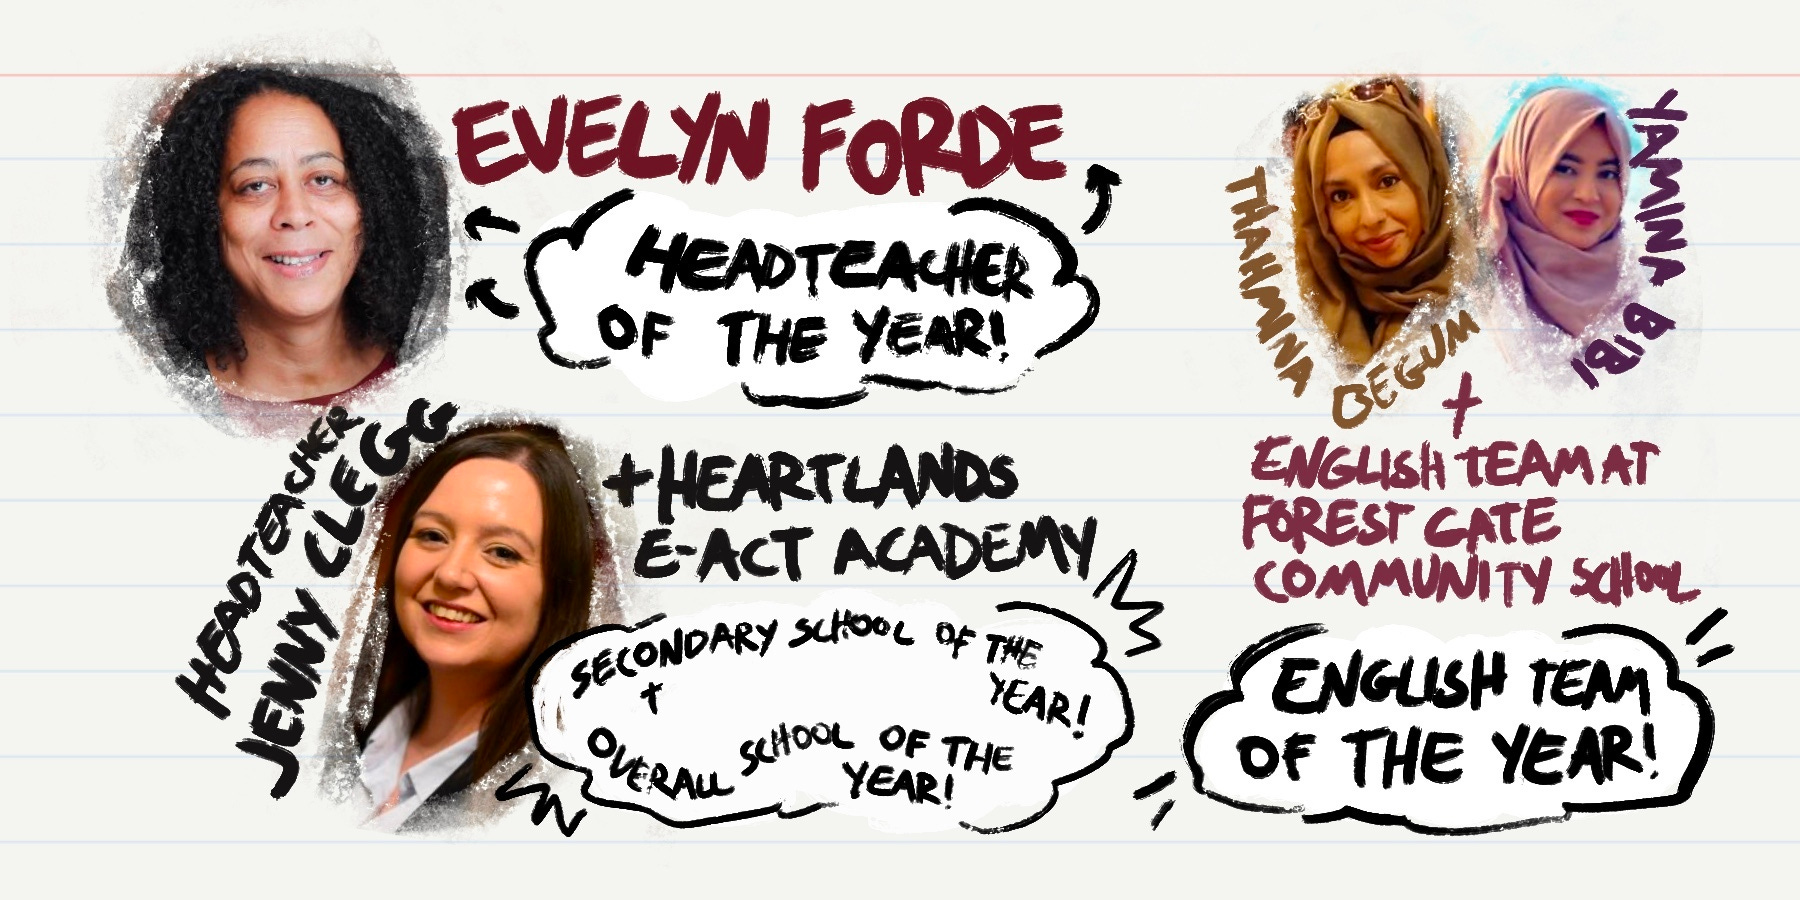 EVELYN FORDE
HEADTEACHER
OF THE YEAR!
HEADTEACHER
JENNY CLEGG
+ HEARTLANDS
E-ACT ACADEMY
SECONDARY SCHOOL OF THE
YEAR!
+
OVERALL SCHOOL OF THE
YEAR!
THAHMINA
BEGUM
YAMINA BIBI
+
ENGLISH TEAM AT
FOREST GATE
COMMUNITY SCHOOL
ENGLISH TEAM
OF THE YEAR!